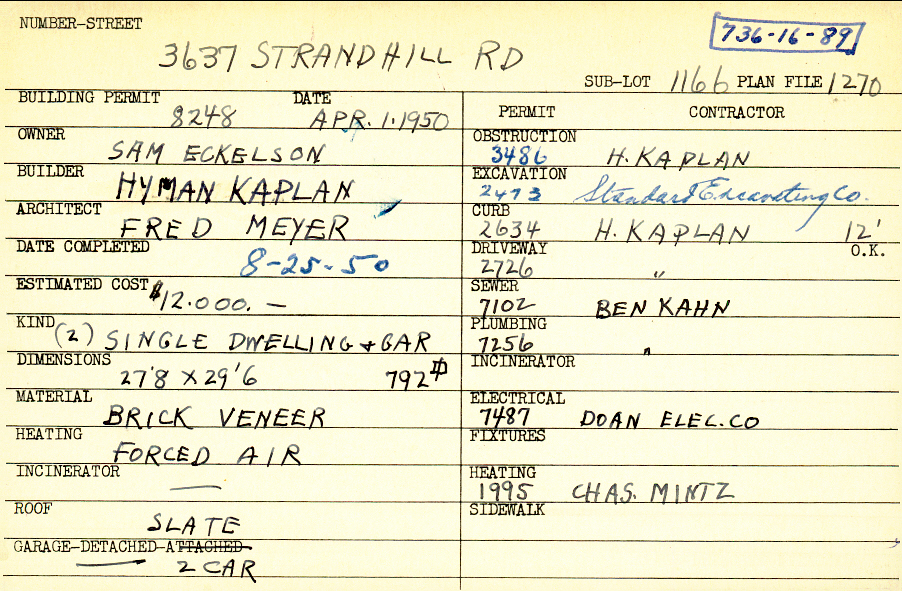 NUMBER-STREET
736-16-89
3637 STRANDHILL RD
SUB-LOT 1166 PLAN FILE 1270
BUILDING PERMIT DATE
8248 APR. 1. 1950
OWNER
SAM ECKELSON
BUILDER
HYMAN KAPLAN
ARCHITECT
FRED MEYER
DATE COMPLETED
8-25-50
ESTIMATED COST $12.000. —
KIND (2) SINGLE DWELLING + GAR
DIMENSIONS
27'8 X 29'6 792#
MATERIAL
BRICK VENEER
HEATING
FORCED AIR
INCINERATOR
—
ROOF
SLATE
GARAGE-DETACHED-ATTACHED-
2 CAR
PERMIT CONTRACTOR
OBSTRUCTION
3486 H. KAPLAN
EXCAVATION
2473 Standard Excavating Co.
CURB
2634 H. KAPLAN 12'
DRIVEWAY O.K.
2726 "
SEWER
7102 BEN KAHN
PLUMBING
7256 "
INCINERATOR
ELECTRICAL
7487 DOAN ELEC. CO
FIXTURES
HEATING
1995 CHAS. MINTZ
SIDEWALK